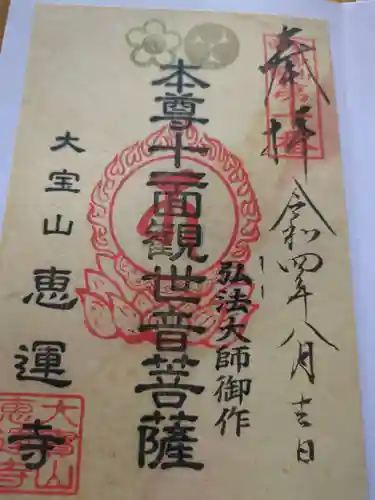 奉拝
令和四年八月十一日
弘法大師御作
本尊十一面観世音菩薩
大宝山
恵運寺
大宝山
恵運寺